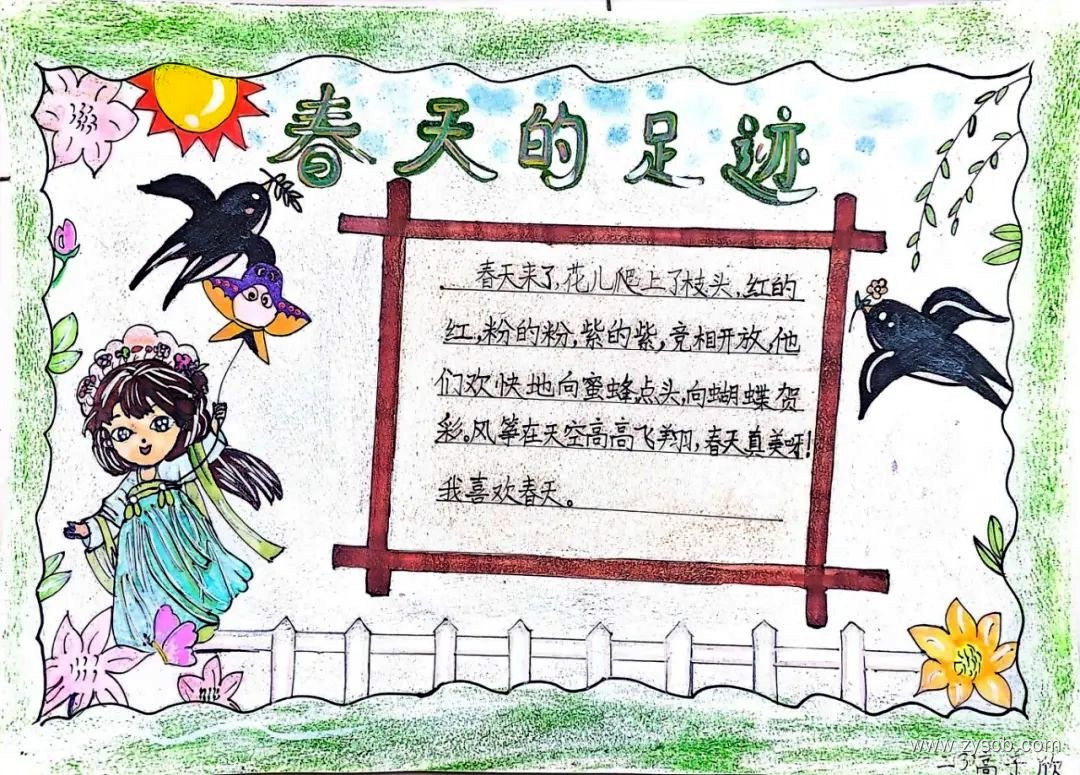 春天的足迹
春天来了,花儿爬上了枝头,红的
红,粉的粉,紫的紫,竞相开放,他
们欢快地向蜜蜂点头,向蝴蝶贺
彩。风筝在天空高高飞翔,春天真美呀!
我喜欢春天。
www.zysob.com